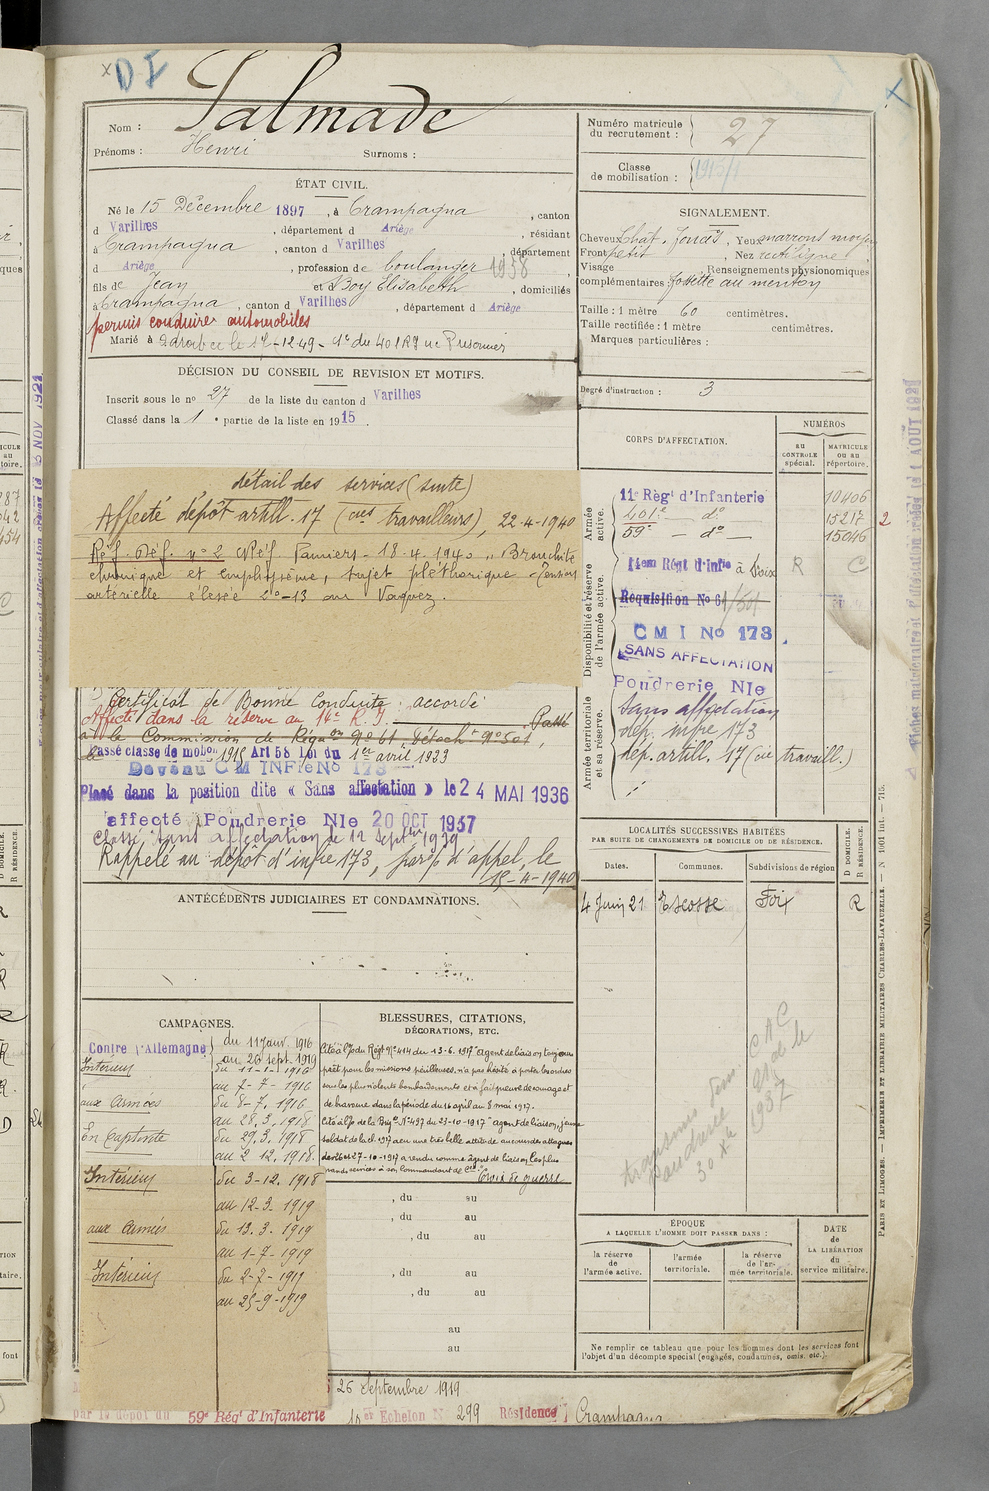 D I
Nom : Salmade
Prénoms : Henri Surnoms :
ÉTAT CIVIL.
Né le 15 Décembre 1897, à Crampagna, canton
d Varilhes, département d Ariège, résidant
à Crampagna, canton d Varilhes, département
d Ariège, profession de boulanger 1958
fils de Jean et Boy Elisabeth, domiciliés
à Crampagna, canton d Varilhes, département d Ariège
permis conduire automobiles
Marié à
DÉCISION DU CONSEIL DE REVISION ET MOTIFS.
Inscrit sous le no 27 de la liste du canton d Varilhes
Classé dans la 1e partie de la liste en 1915.
détail des services (suite)
Affecté dépôt artill. 17 (cies travailleurs), 22-4-1940
Réf. Déf. no 2 CRéf. Pamiers - 18.4.1940 "Bronchite
chronique et emphysème, sujet pléthorique - Tension
artérielle élevée 20-13 au Vaquez.
Certificat de Bonne Conduite accordé
Affecté dans la réserve au 14e R. I. Passé
à le Commission de Réqon No 61 Détacht No 501,
le
Passé classe de mobon 1915 Art 58 loi du 1er avril 1933
Devenu C M INFie No 173
Placé dans la position dite « Sans affectation » le 24 MAI 1936
affecté Poudrerie Nle 20 OCT 1937
Classé sans affectation le 12 Septbre 1939
Rappelé au dépôt d'infie 173, par o. d'appel, le
15-4-1940
ANTÉCÉDENTS JUDICIAIRES ET CONDAMNATIONS.
CAMPAGNES.
Contre l'Allemagne du 11 janv. 1916
au 26 sept. 1919
Intérieur du 11-1-1916
au 7-7-1916
aux Armées du 8-7, 1916
au 28.3.1918
En Captivité du 29.3.1918
au 2 12.1918.
Intérieur du 3-12.1918
au 12-3.1919
aux Armées du 13.3.1919
au 1-7-1919
Intérieur du 2-7-1919
au 25-9-1919
BLESSURES, CITATIONS,
DÉCORATIONS, ETC.
Cité à l'o du Régt No 414 du 13.6.1917 "agent de liaison toujours
prêt pour les missions périlleuses, n'a pas hésité à porter les ordres
sous les plus violents bombardements et a fait preuve de courage et
de bravoure dans la période du 16 avril au 8 mai 1917.
Cité à l'o de la Brige No 497 du 23-10-1917 "agent de liaison, jeune
soldat de la cl. 1917 a eu une très belle attitude au cours des attaques
des 26 et 27-10-1917 a rendu comme agent de liaison les plus
grands services à son Commandant de Cie.
Croix de guerre
, du au
, du au
, du au
, du au
, du au
au
au
26 Septembre 1919
par le dépôt du 59e Régt d'Infanterie 1er Echelon No 299 Résidence } Crampagna
Numéro matricule
du recrutement : 27
Classe
de mobilisation : 1915/1
SIGNALEMENT.
Cheveux chât. foncés, Yeux marrons moyen
Front petit, Nez rectiligne
Visage Renseignements physionomiques
complémentaires : fossette au menton
Taille : 1 mètre 60 centimètres.
Taille rectifiée : 1 mètre centimètres.
Marques particulières :
Degré d'instruction : 3
CORPS D'AFFECTATION.
NUMÉROS
au
CONTROLE
spécial.
MATRICULE
ou au
répertoire.
Armée
active.
11e Régt d'Infanterie 10406
401e - do - 15217 2
59e - do - 15046
Disponibilité et réserve
de l'armée active.
14em Régt d'Infie à Foix R C
Requisition No 61/501
C M I No 173
SANS AFFECTATION
Poudrerie Nle
Armée territoriale
et sa réserve.
Sans affectation
dép. infie 173
dép. artill. 17 (cie travaill.)
LOCALITÉS SUCCESSIVES HABITÉES
PAR SUITE DE CHANGEMENTS DE DOMICILE OU DE RÉSIDENCE.
D DOMICILE.
R RÉSIDENCE.
Dates. Communes. Subdivisions de région
4 Juin 21 Escosse Foix R
transmis dem. CAC
Poudrerie
30 Xe 1937
ÉPOQUE
A LAQUELLE L'HOMME DOIT PASSER DANS :
DATE
de
LA LIBÉRATION
du
service militaire.
la réserve
de
l'armée active.
l'armée
territoriale.
la réserve
de l'armée territoriale.
Ne remplir ce tableau que pour les hommes dont les services font
l'objet d'un décompte spécial (engagés, condamnés, omis, etc.).
PARIS ET LIMOGES. — IMPRIMERIE ET LIBRAIRIE MILITAIRES CHARLES-LAVAUZELLE. — N 1601 int. — 715.